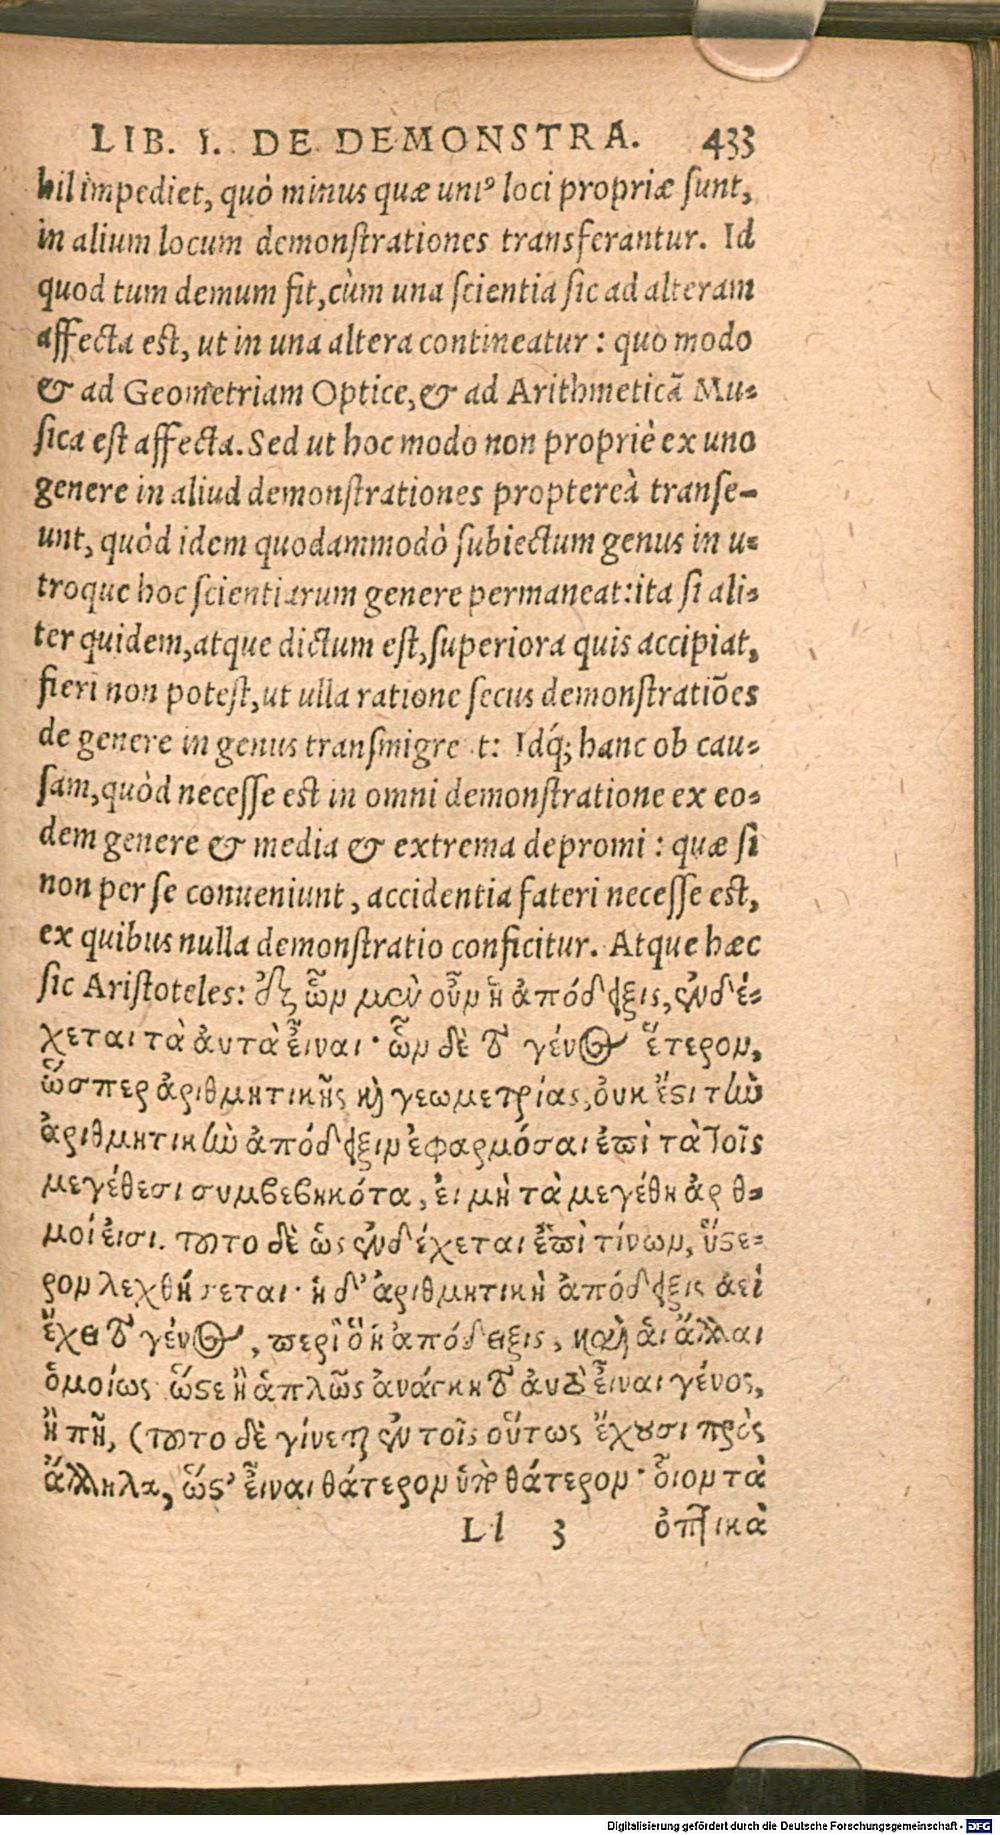 LIB. I. DE DEMONSTRA. 433
hil impediet, quò minus quæ uniꝰ loci propriæ ſunt,
in alium locum demonſtrationes transferantur. Id
quod tum demum fit, cùm una ſcientia ſic ad alteram
affecta eſt, ut in una altera contineatur : quo modo
& ad Geometriam Optice, & ad Arithmeticā Mu-
ſica eſt affecta. Sed ut hoc modo non propriè ex uno
genere in aliud demonſtrationes proptereà tranſe-
unt, quòd idem quodammodò ſubiectum genus in u-
troque hoc ſcientiarum genere permaneat: ita ſi ali-
ter quidem, atque dictum eſt, ſuperiora quis accipiat,
fieri non poteſt, ut ulla ratione ſecus demonſtratiōes
de genere in genus tranſmigre t: Idq́; hanc ob cau-
ſam, quòd neceſſe eſt in omni demonſtratione ex eo-
dem genere & media & extrema depromi : quæ ſi
non per ſe conueniunt, accidentia fateri neceſſe eſt,
ex quibus nulla demonſtratio conficitur. Atque hæc
ſic Ariſtoteles: ἐξ ὧν μὲν οὖν ἡ ἀπόδειξις, ἐνδέ-
χεται τὰ ἀυτὰ εἶναι· ὧν δὲ τὸ γένος ἕτερον,
ὥσπερ ἀριθμητικῆς καὶ γεωμετρίας, ὀυκ ἔστι τὴν
ἀριθμητικὴν ἀπόδειξιν ἐφαρμόσαι ἐπὶ τὰ τοῖς
μεγέθεσι συμβεβηκότα, ἐι μὴ τὰ μεγέθη ἀρ θ-
μοί ἐισι. τοῦτο δὲ ὡς ἐνδέχεται ἐπὶ τίνων, ὕστε-
ρον λεχθήσεται· ἡ δ' ἀριθμητικὴ ἀπόδειξις ἀεὶ
ἔχει τὸ γένος, περὶ ὃ ἡ ἀπόδειξις, καὶ ἁι ἄλλαι
ὁμοίως ὥστε ἢ ἁπλῶς ἀνάγκη τὸ ἀυτὸ εἶναι γένος,
ἢ πῆ, (τοῦτο δὲ γίνεται ἐν τοῖς οὕτως ἔχουσι πρὸς
ἄλληλα, ὥστ' εἶναι θάτερον ὑπὸ θάτερον· ὅιον τὰ
Ll 3 ὀπτικὰ
Digitalisierung gefördert durch die Deutsche Forschungsgemeinschaft - DFG